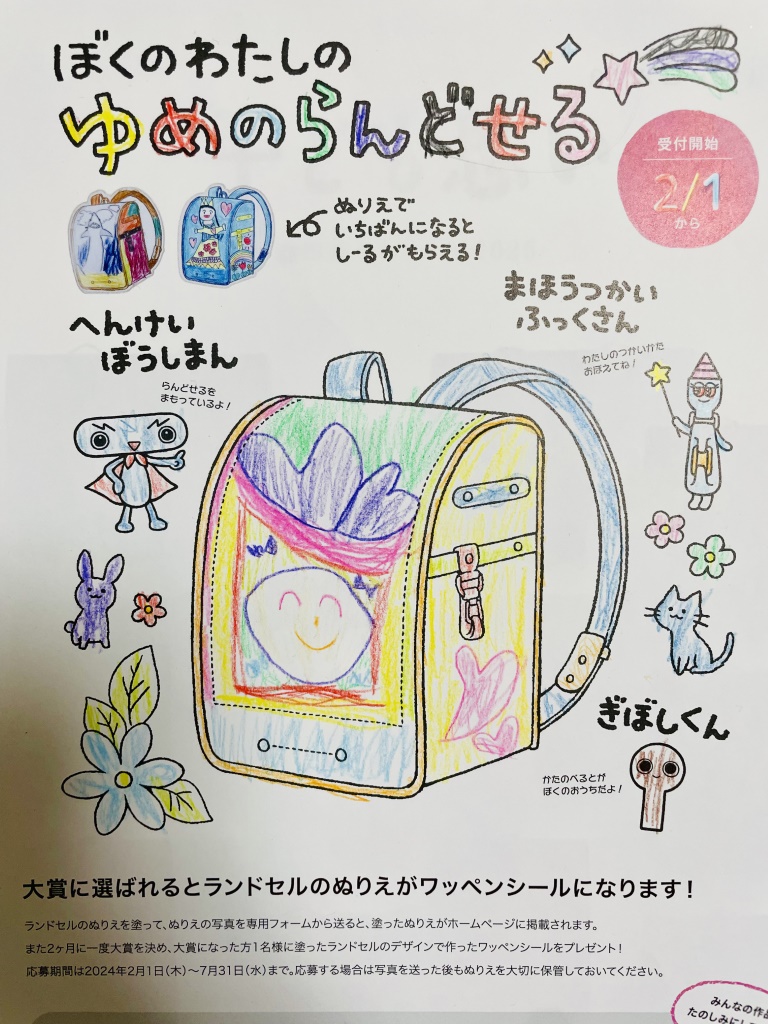 ぼくのわたしの
ゆめのらんどせる
受付開始
2/1
から
ぬりえで
いちばんになると
しーるがもらえる!
まほうつかい
ふっくさん
わたしのつかいかた
おぼえてね!
へんけい
ぼうしまん
らんどせるを
まもっているよ!
ぎぼしくん
かたのべるとが
ぼくのおうちだよ!
大賞に選ばれるとランドセルのぬりえがワッペンシールになります!
ランドセルのぬりえを塗って、ぬりえの写真を専用フォームから送ると、塗ったぬりえがホームページに掲載されます。
また2ヶ月に一度大賞を決め、大賞になった方1名様に塗ったランドセルのデザインで作ったワッペンシールをプレゼント!
応募期間は2024年2月1日(木)〜7月31日(水)まで。応募する場合は写真を送った後もぬりえを大切に保管しておいてください。
みんなの作品
たのしみにし